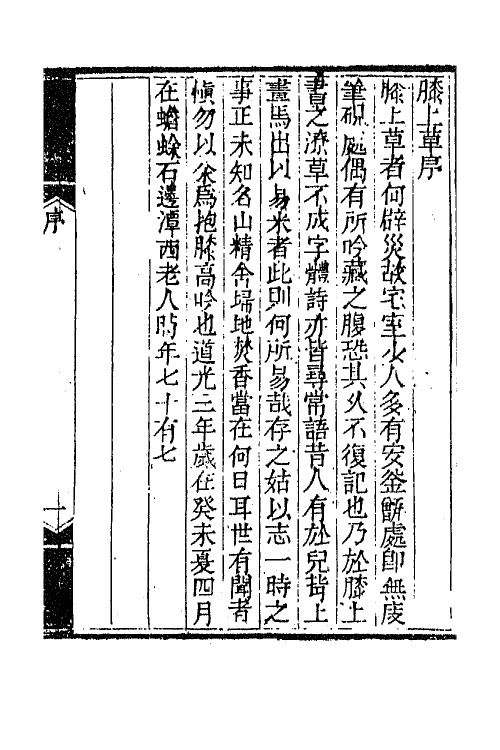 膝上草序
膝上草者何辟災故宅室少人多有安釜䰝處即無庋
筆硯處偶有所吟藏之腹恐其久不復記也乃於膝上
書之潦草不成字體詩亦皆尋常語昔人有於兒背上
畫馬出以易米者此則何所易哉存之姑以志一時之
事正未知名山精舍埽地焚香當在何日耳世有聞者
慎勿以余爲抱膝高吟也道光三年歲在癸未夏四月
在蟾蜍石邊潭西老人時年七十有七
序
一